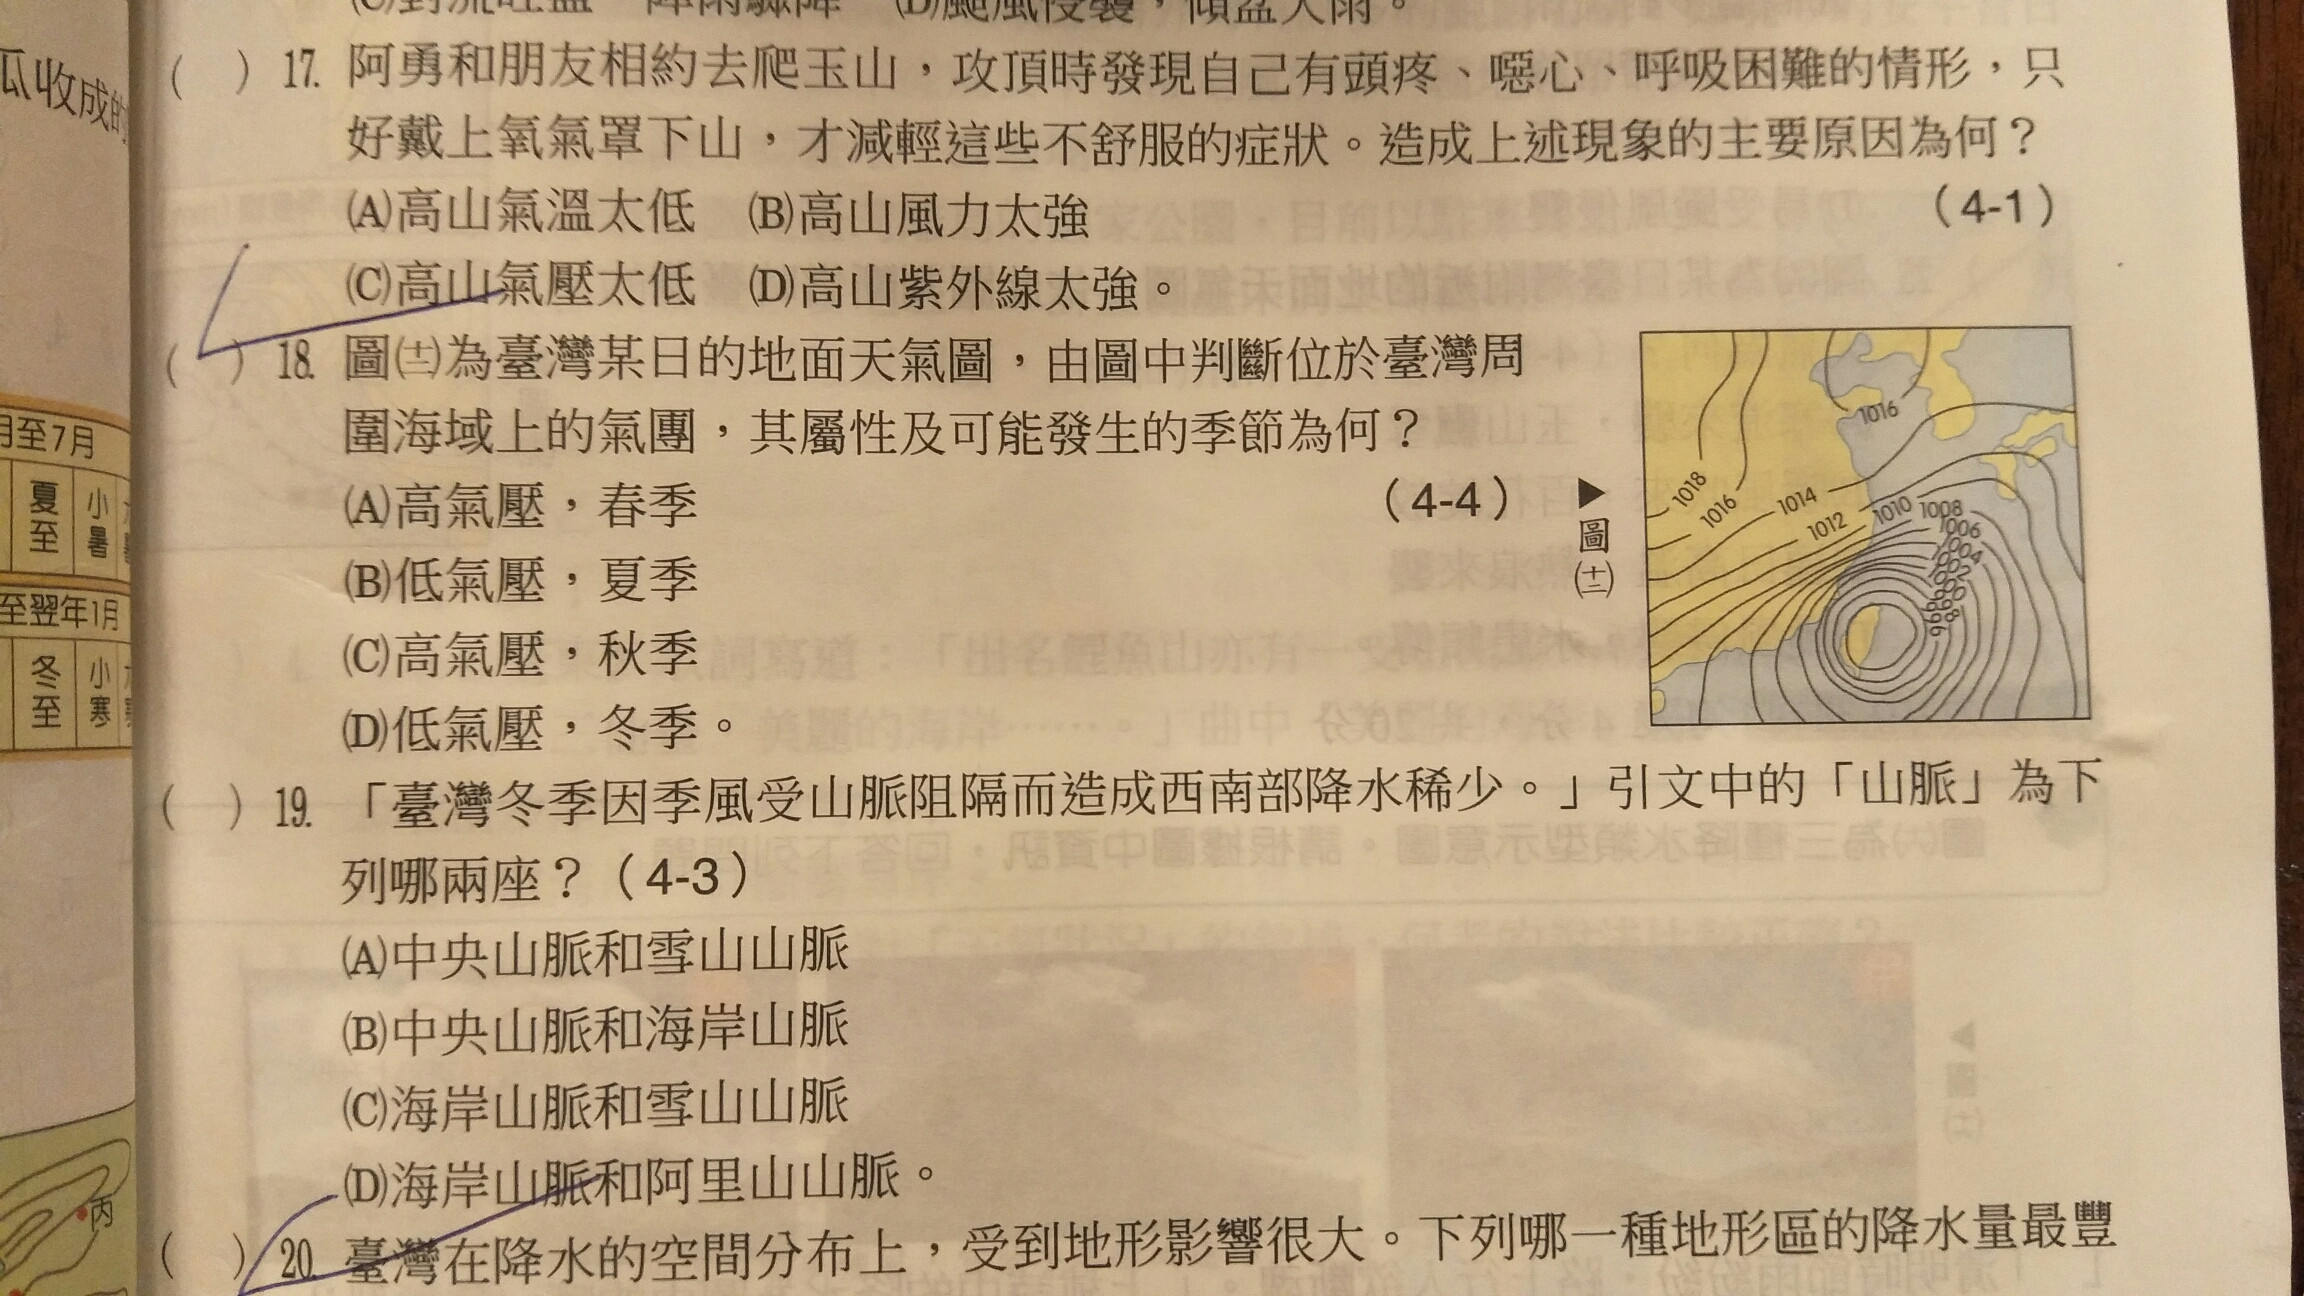 瓜收成的
月至7月
夏至
小暑
至翌年1月
冬至
小寒
丙
(　) 17. 阿勇和朋友相約去爬玉山，攻頂時發現自己有頭疼、噁心、呼吸困難的情形，只
好戴上氧氣罩下山，才減輕這些不舒服的症狀。造成上述現象的主要原因為何？
(A)高山氣溫太低　(B)高山風力太強　(4-1)
(C)高山氣壓太低　(D)高山紫外線太強。
(　) 18. 圖(十二)為臺灣某日的地面天氣圖，由圖中判斷位於臺灣周
圍海域上的氣團，其屬性及可能發生的季節為何？
(A)高氣壓，春季　(4-4)
(B)低氣壓，夏季
(C)高氣壓，秋季
(D)低氣壓，冬季。
▶圖(十二)
1016
1018
1016
1014
1012
1010
1008
1006
1004
1002
996
(　) 19. 「臺灣冬季因季風受山脈阻隔而造成西南部降水稀少。」引文中的「山脈」為下
列哪兩座？(4-3)
(A)中央山脈和雪山山脈
(B)中央山脈和海岸山脈
(C)海岸山脈和雪山山脈
(D)海岸山脈和阿里山山脈。
(　) 20. 臺灣在降水的空間分布上，受到地形影響很大。下列哪一種地形區的降水量最豐